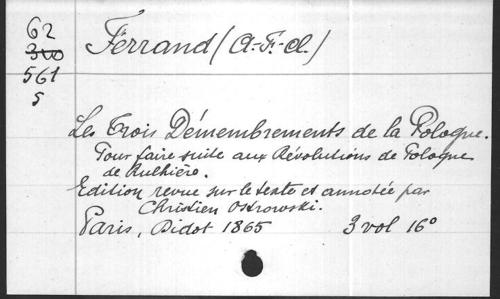 62
310
561
5
Ferrand (A.-F.-Cl.)
Les Trois Démembrements de la Pologne.
Pour faire suite aux Révolutions de Pologne
de Rulhière.
Edition revue sur le texte et annotée par
Christien Ostrowski.
Paris, Didot 1865 3 vol 16°